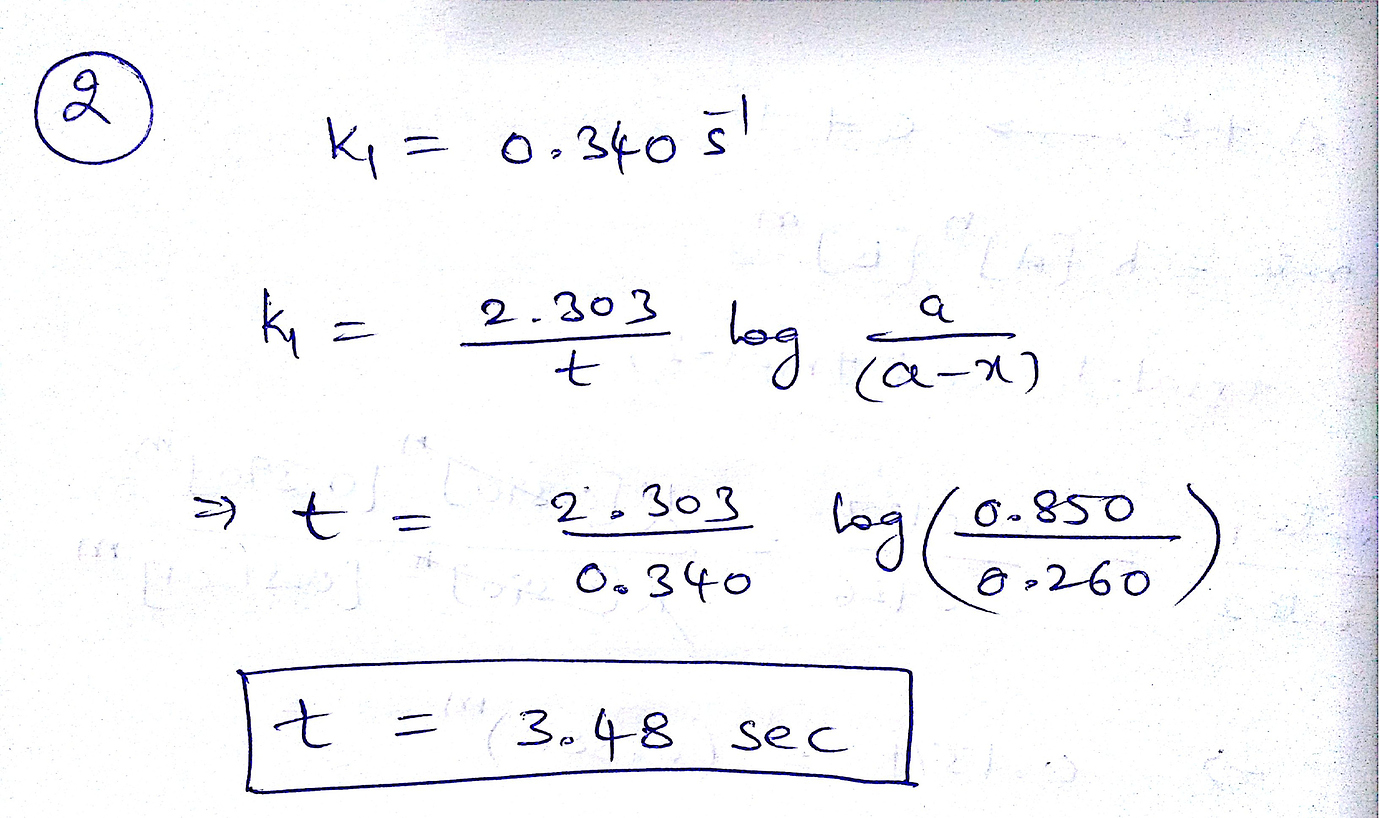 2
k₁ = 0.340 s⁻¹
k₁ = 2.303/t log a/(a-x)
⇒ t = 2.303/0.340 log(0.850/0.260)
t = 3.48 sec